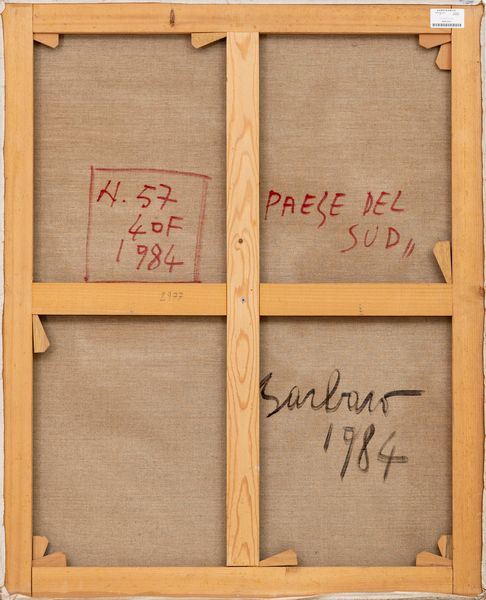 N. 57
40F
1984
PAESE DEL
SUD„
2977
Barbaro
1984